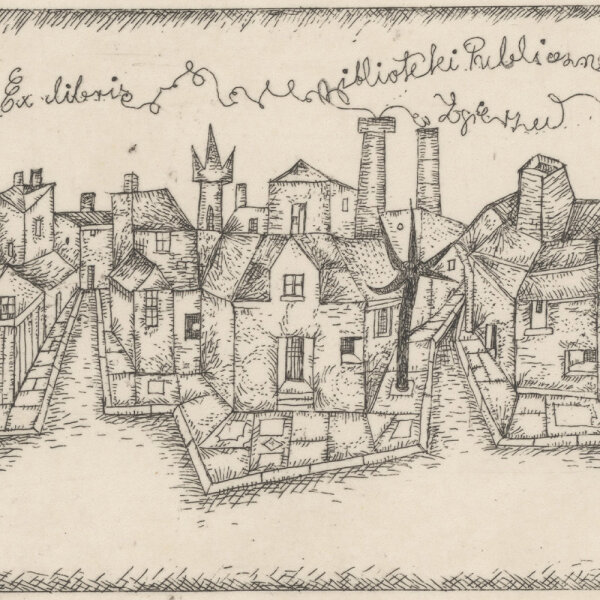 Ex libris Biblioteki Publiczn
Zgierzu